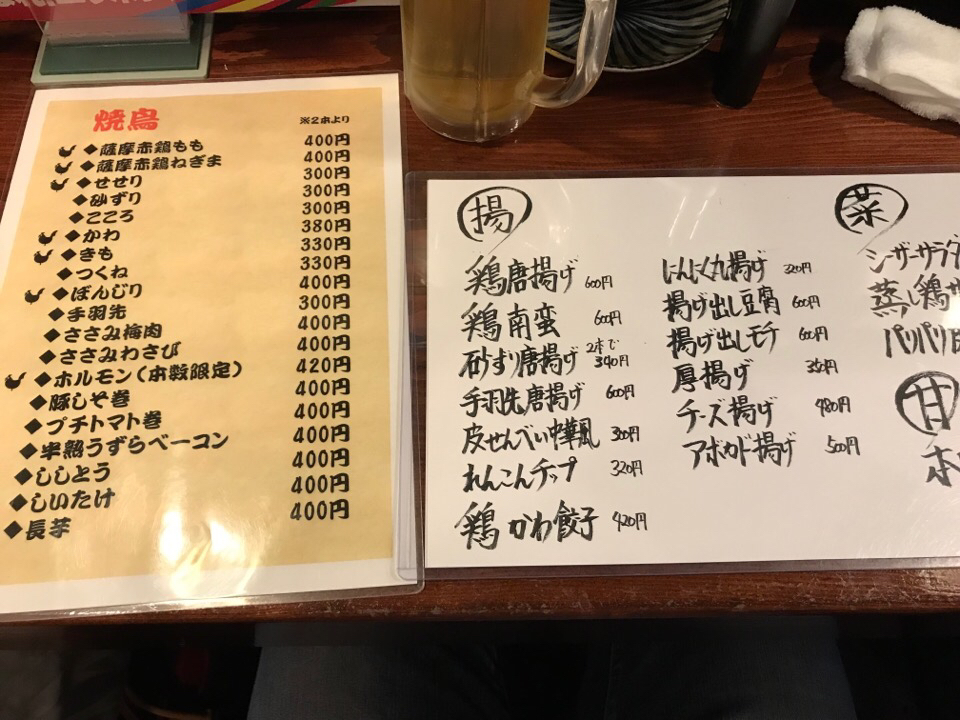 焼鳥 ※2本より
◆薩摩赤鶏もも 400円
◆薩摩赤鶏ねぎま 400円
◆せせり 300円
◆砂ずり 300円
◆こころ 300円
◆かわ 380円
◆きも 330円
◆つくね 330円
◆ぼんじり 400円
◆手羽先 300円
◆ささみ梅肉 400円
◆ささみわさび 400円
◆ホルモン(本数限定) 420円
◆豚しそ巻 400円
◆プチトマト巻 400円
◆半熟うずらベーコン 400円
◆ししとう 400円
◆しいたけ 400円
◆長芋 400円
揚
鶏唐揚げ 600円
鶏南蛮 600円
砂ずり唐揚げ 2本で 340円
手羽先唐揚げ 600円
皮せんべい中華風 300円
れんこんチップ 320円
鶏かわ餃子 420円
にんにく丸揚げ 320円
揚げ出し豆腐 600円
揚げ出しモチ 600円
厚揚げ 350円
チーズ揚げ 480円
アボカド揚げ 500円
菜
シーザーサラダ
蒸し鶏サ
パリパリ
甘
本